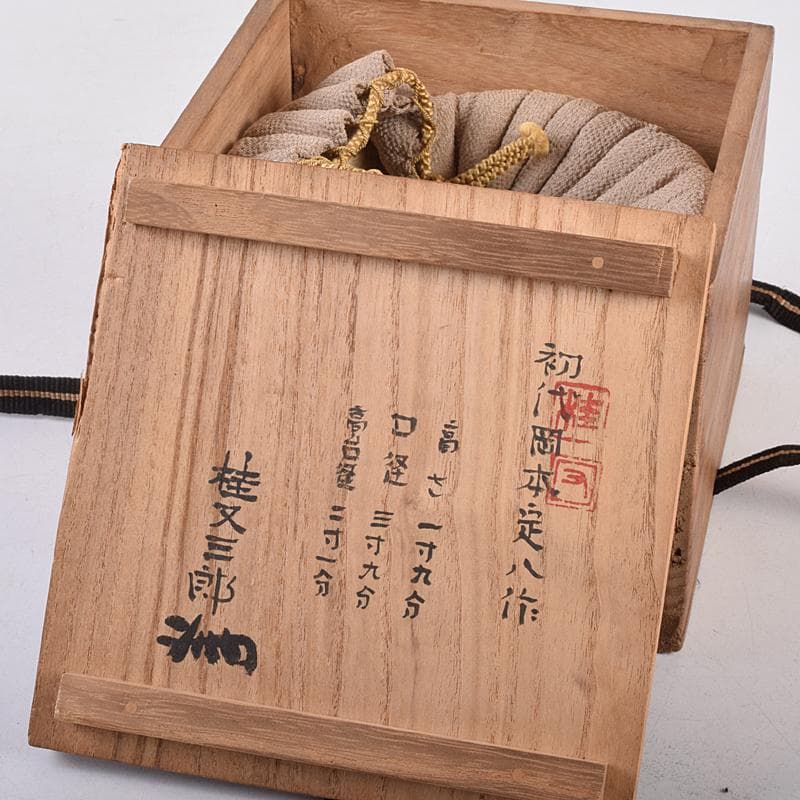 初代岡本定八作
桂
又
高さ 一寸九分
口径 三寸九分
高台径 二寸一分
桂又三郎